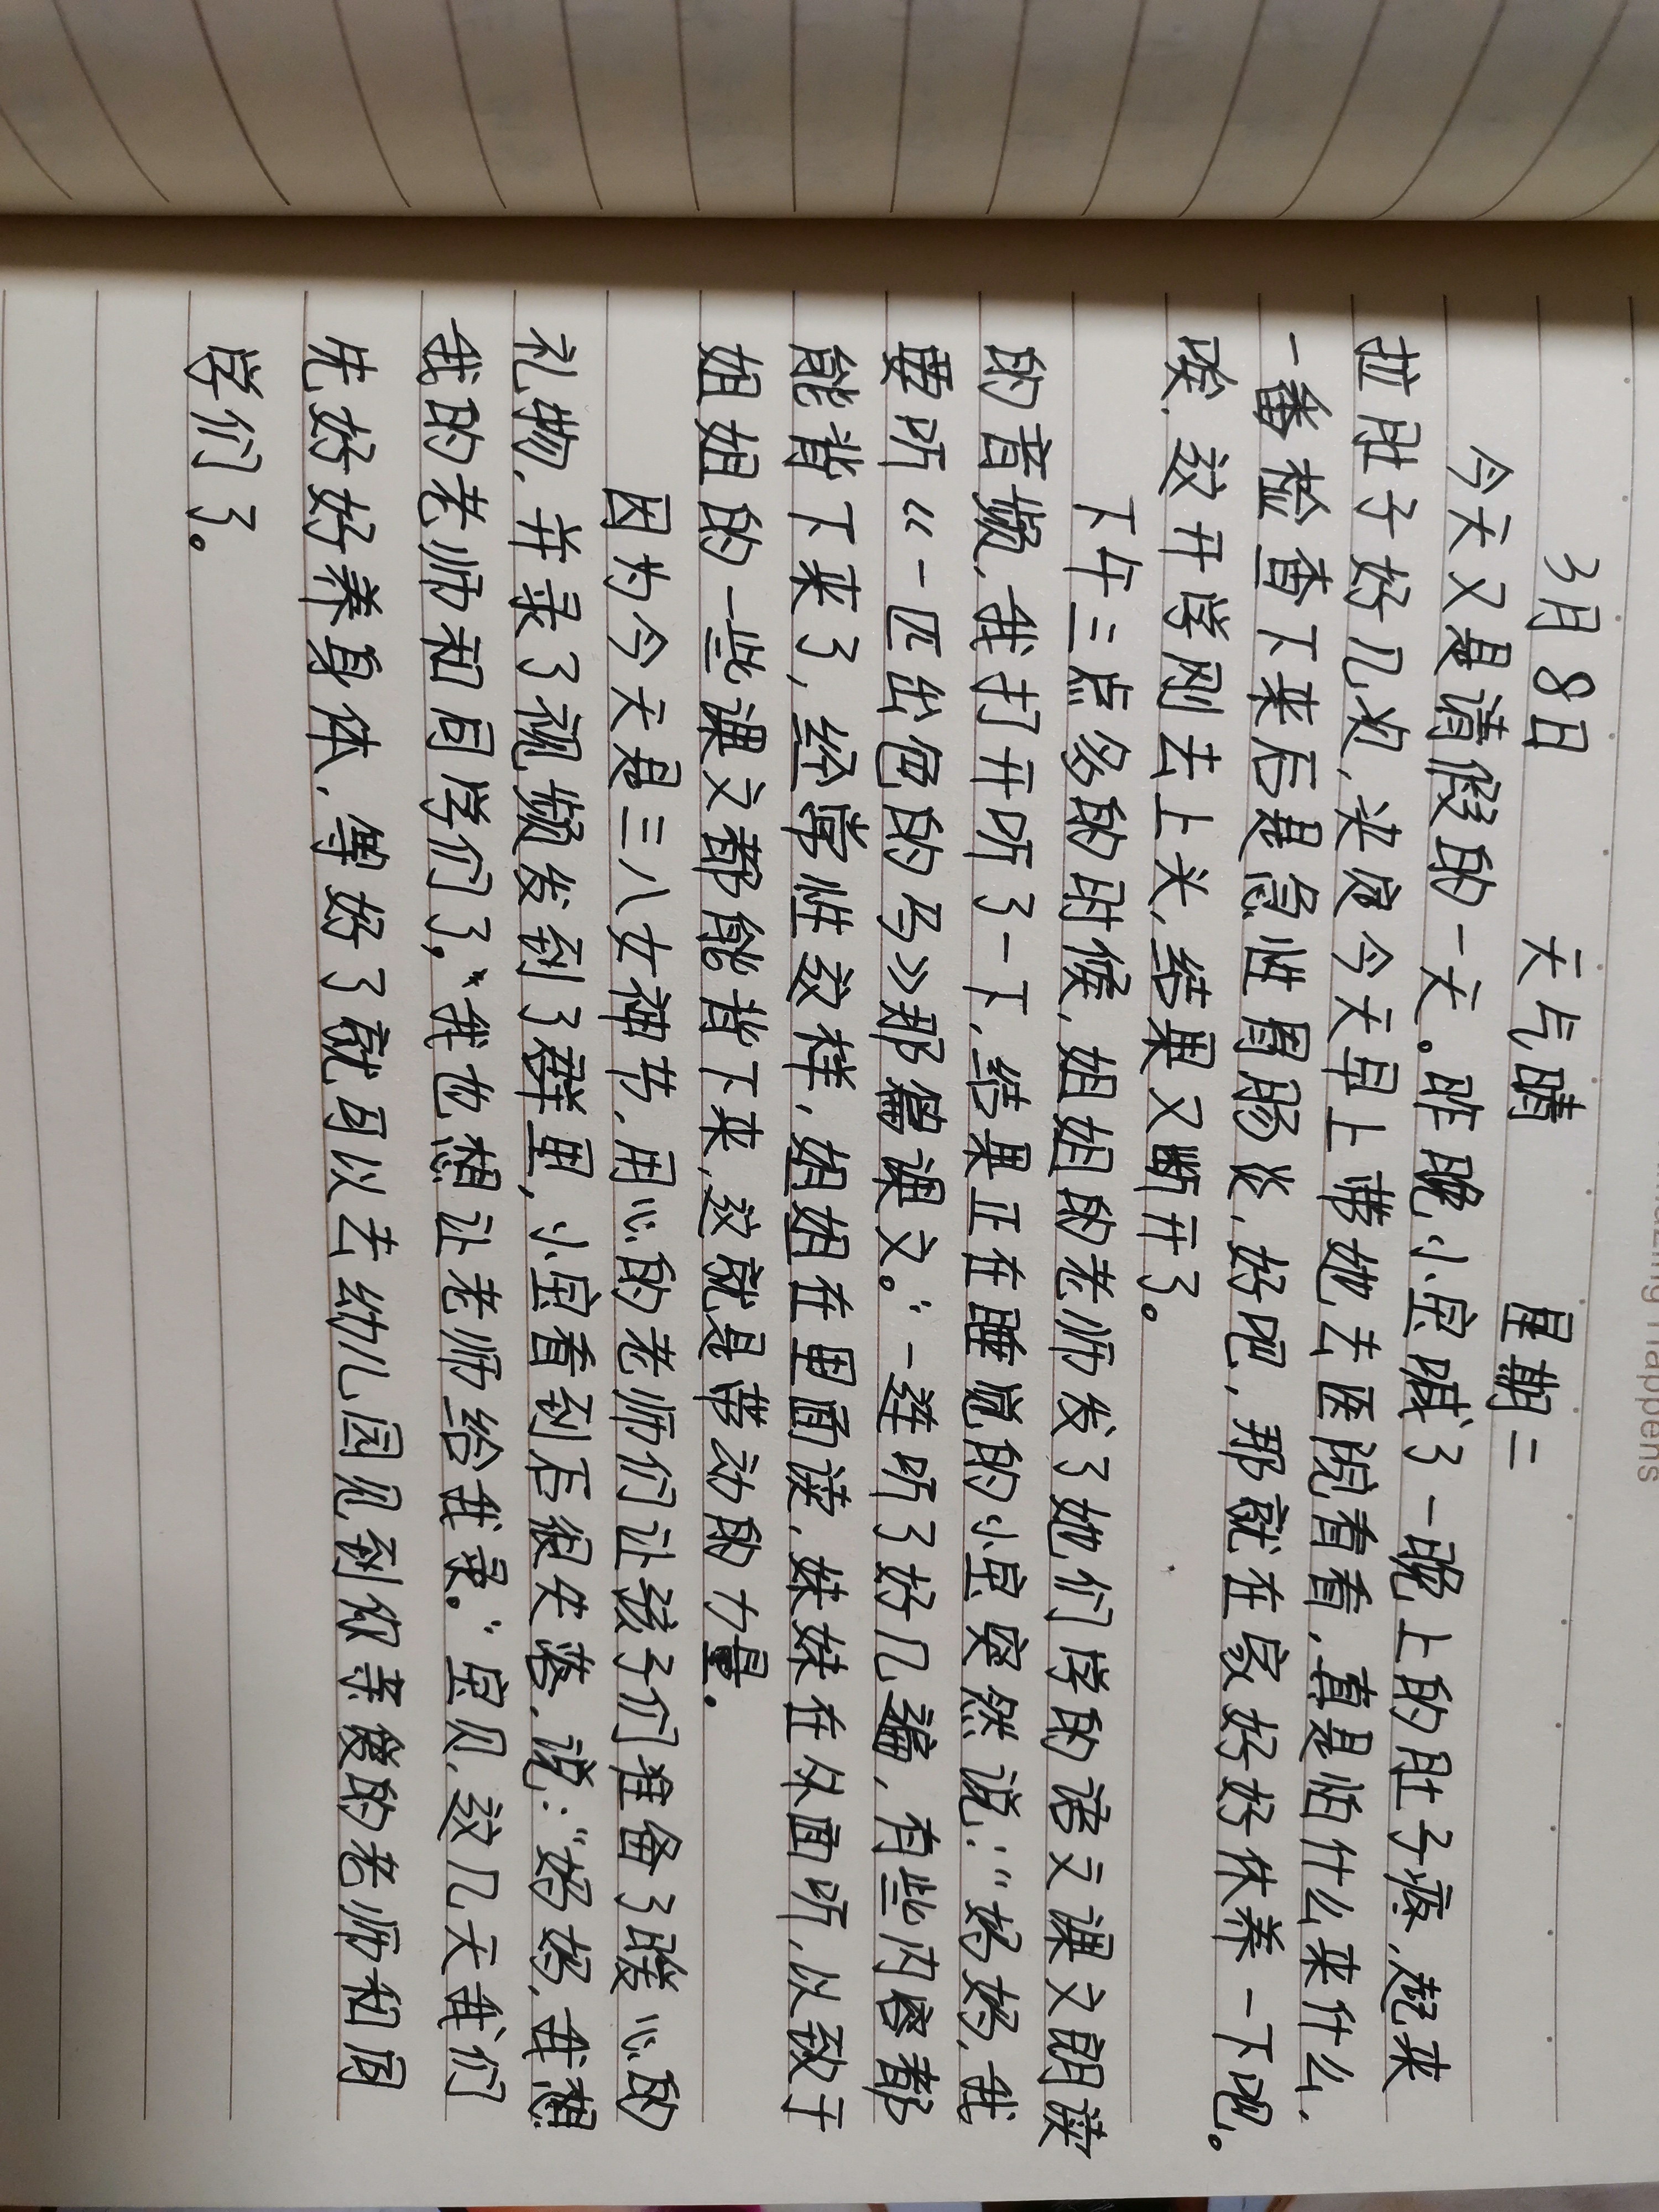 3月8日 天气晴 星期二
今天又是请假的一天。昨晚小宝喊了一晚上的肚子疼,起来
拉肚子好几次,决定今天早上带她去医院看看,真是怕什么来什么,
一番检查下来后是急性胃肠炎,好吧,那就在家好好休养一下吧。
唉,这开学刚去上米,结果又断开了。
下午三点多的时候,姐姐的老师发了她们学的语文课文朗读
的音频,我打开听了一下,结果正在睡觉的小宝突然说:“妈妈,我
要听《一匹出色的马》那篇课文。”一连听了好几遍,有些内容都
能背下来了,经常性这样,姐姐在里面读,妹妹在外面听,以致于
姐姐的一些课文都能背下来,这就是带动的力量。
因为今天是三八女神节,用心的老师们让孩子们准备了暖心的
礼物,并录了视频发到了群里,小宝看到后很失落,说:“妈妈,我想
我的老师和同学们了,“我也想让老师给我录。”宝贝,这几天我们
先好好养身体,等好了就可以去幼儿园见到你亲爱的老师和同
学们了。